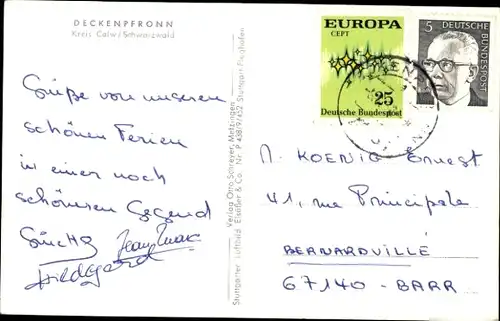 DECKENPFRONN
Kreis Calw / Schwarzwald
Grüße von unseren
schönen Ferien
in einer noch
schöneren Gegend
Hildegard
Verlag Otto Schreyer, Metzingen
Stuttgarter Luftbild Elsäßer & Co. Nr. P 438/9/452 Stuttgart-Flughafen
EUROPA
CEPT
25
Deutsche Bundespost
5
DEUTSCHE
BUNDESPOST
M. KOENIG Ernest
41, rue Principale
BERNARDVILLÉ
67140 - BARR